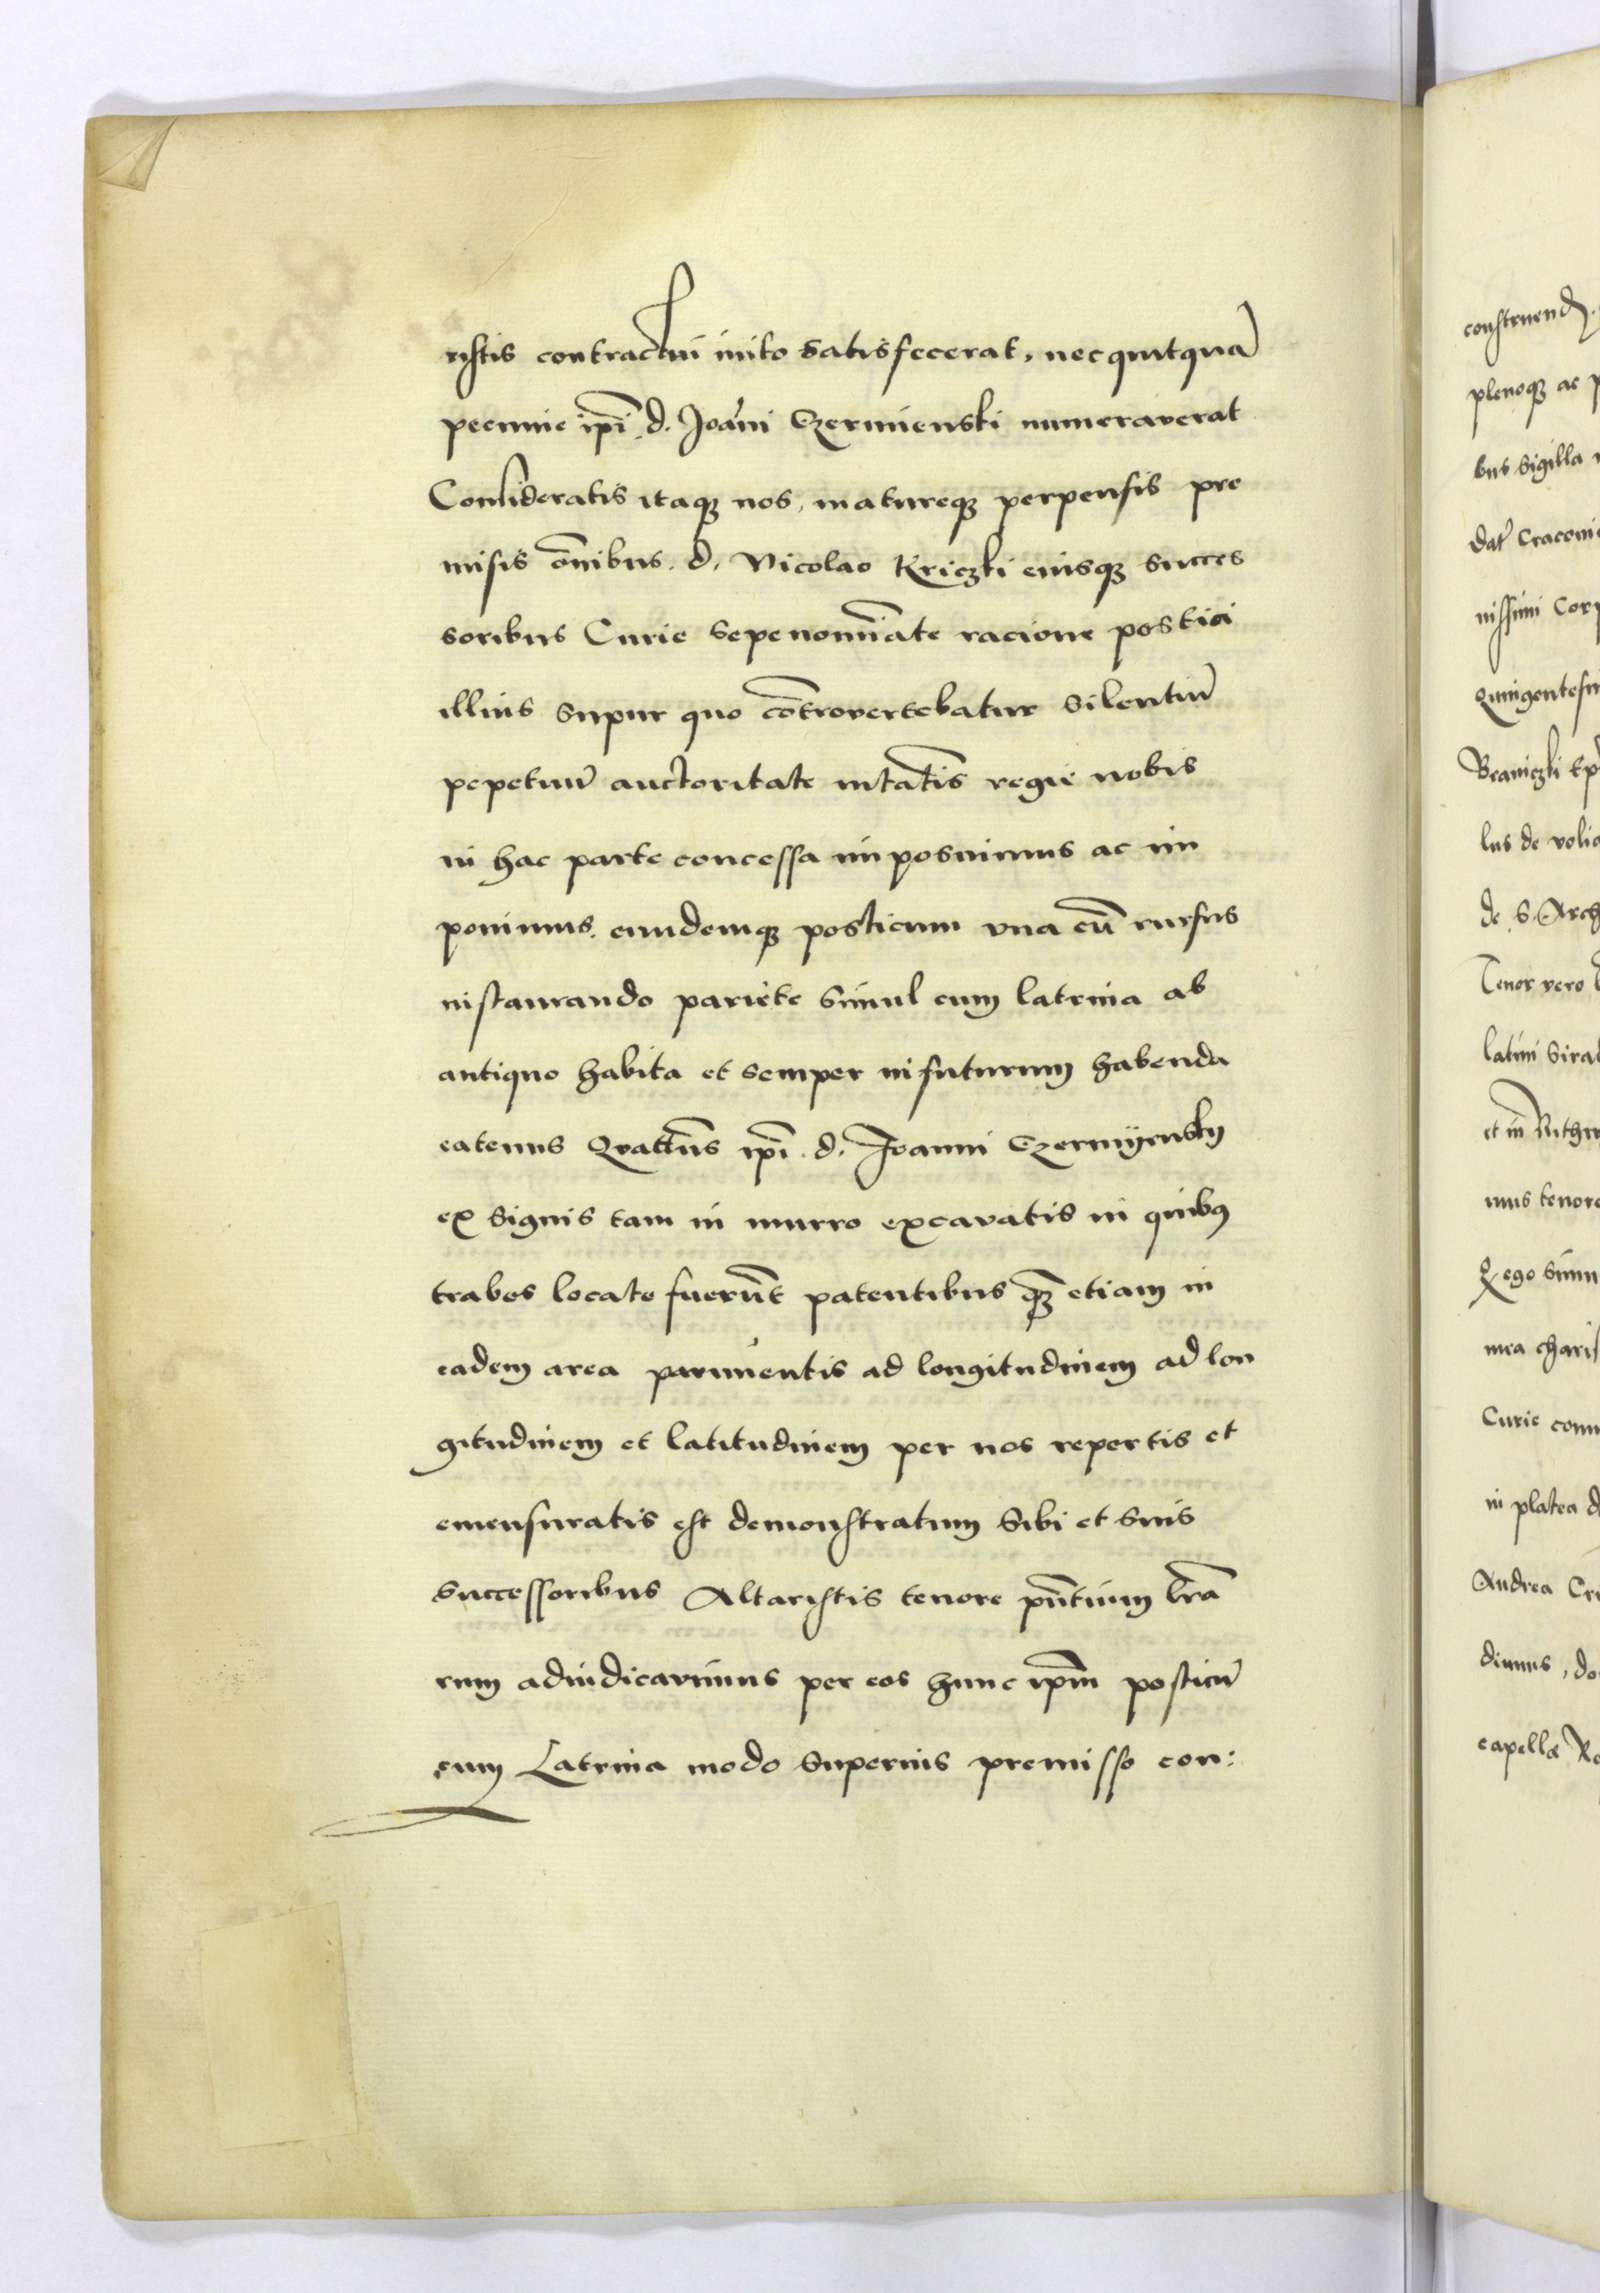 ristis contractui inito satisfecerat, nec quitquā
pecunie ip̄i d. Joāni Czermienski numeraverat
Consideratis itaqꝫ nos, matureqꝫ perpensis pre
misis ōnibus. d. Nicolao Kriczki eiusqꝫ succes
soribus Curie sepenomīate racione postici
illius supur quo cōtrovertebatur silentiū
pepetuū auctoritate mtātis regie nobis
in hac parte concessa imposuimus ac im
ponimus. eundemqꝫ posticum vna cū rursus
instaurando pariete simul cum latrina ab
antiquo habita et semper in futurum habenda
eatenus Qvattēs ip̄i d. Joanni Czermyensky
ex signis tam in murro excavatis in quibꝯ
trabes locate fuerūt patentibus qꝫ̄ etiam in
eadem area parimentis ad longitudinem ad lon
gitudinem et latitudinem per nos repertis et
emensuratis est demonstratum sibi et suis
successoribus Altaristis tenore pn̄tium lrā
rum adiudicavimus per eos hunc ip̄m posticū
cum Latrina modo superius premisso con:
construend
plenoqꝫ ac
bus sigilla
dat̄ Cracovi
nissimi Corp
Quingentesi
Braniczki Ep
lus de volia
de S. Arch
Tenor vero
latini sirad
et in Ruthe
mus tenore
Q ego simu
mea charis
Curie com
in platea d
Andrea Cri
dimus, do
capellæ Ro